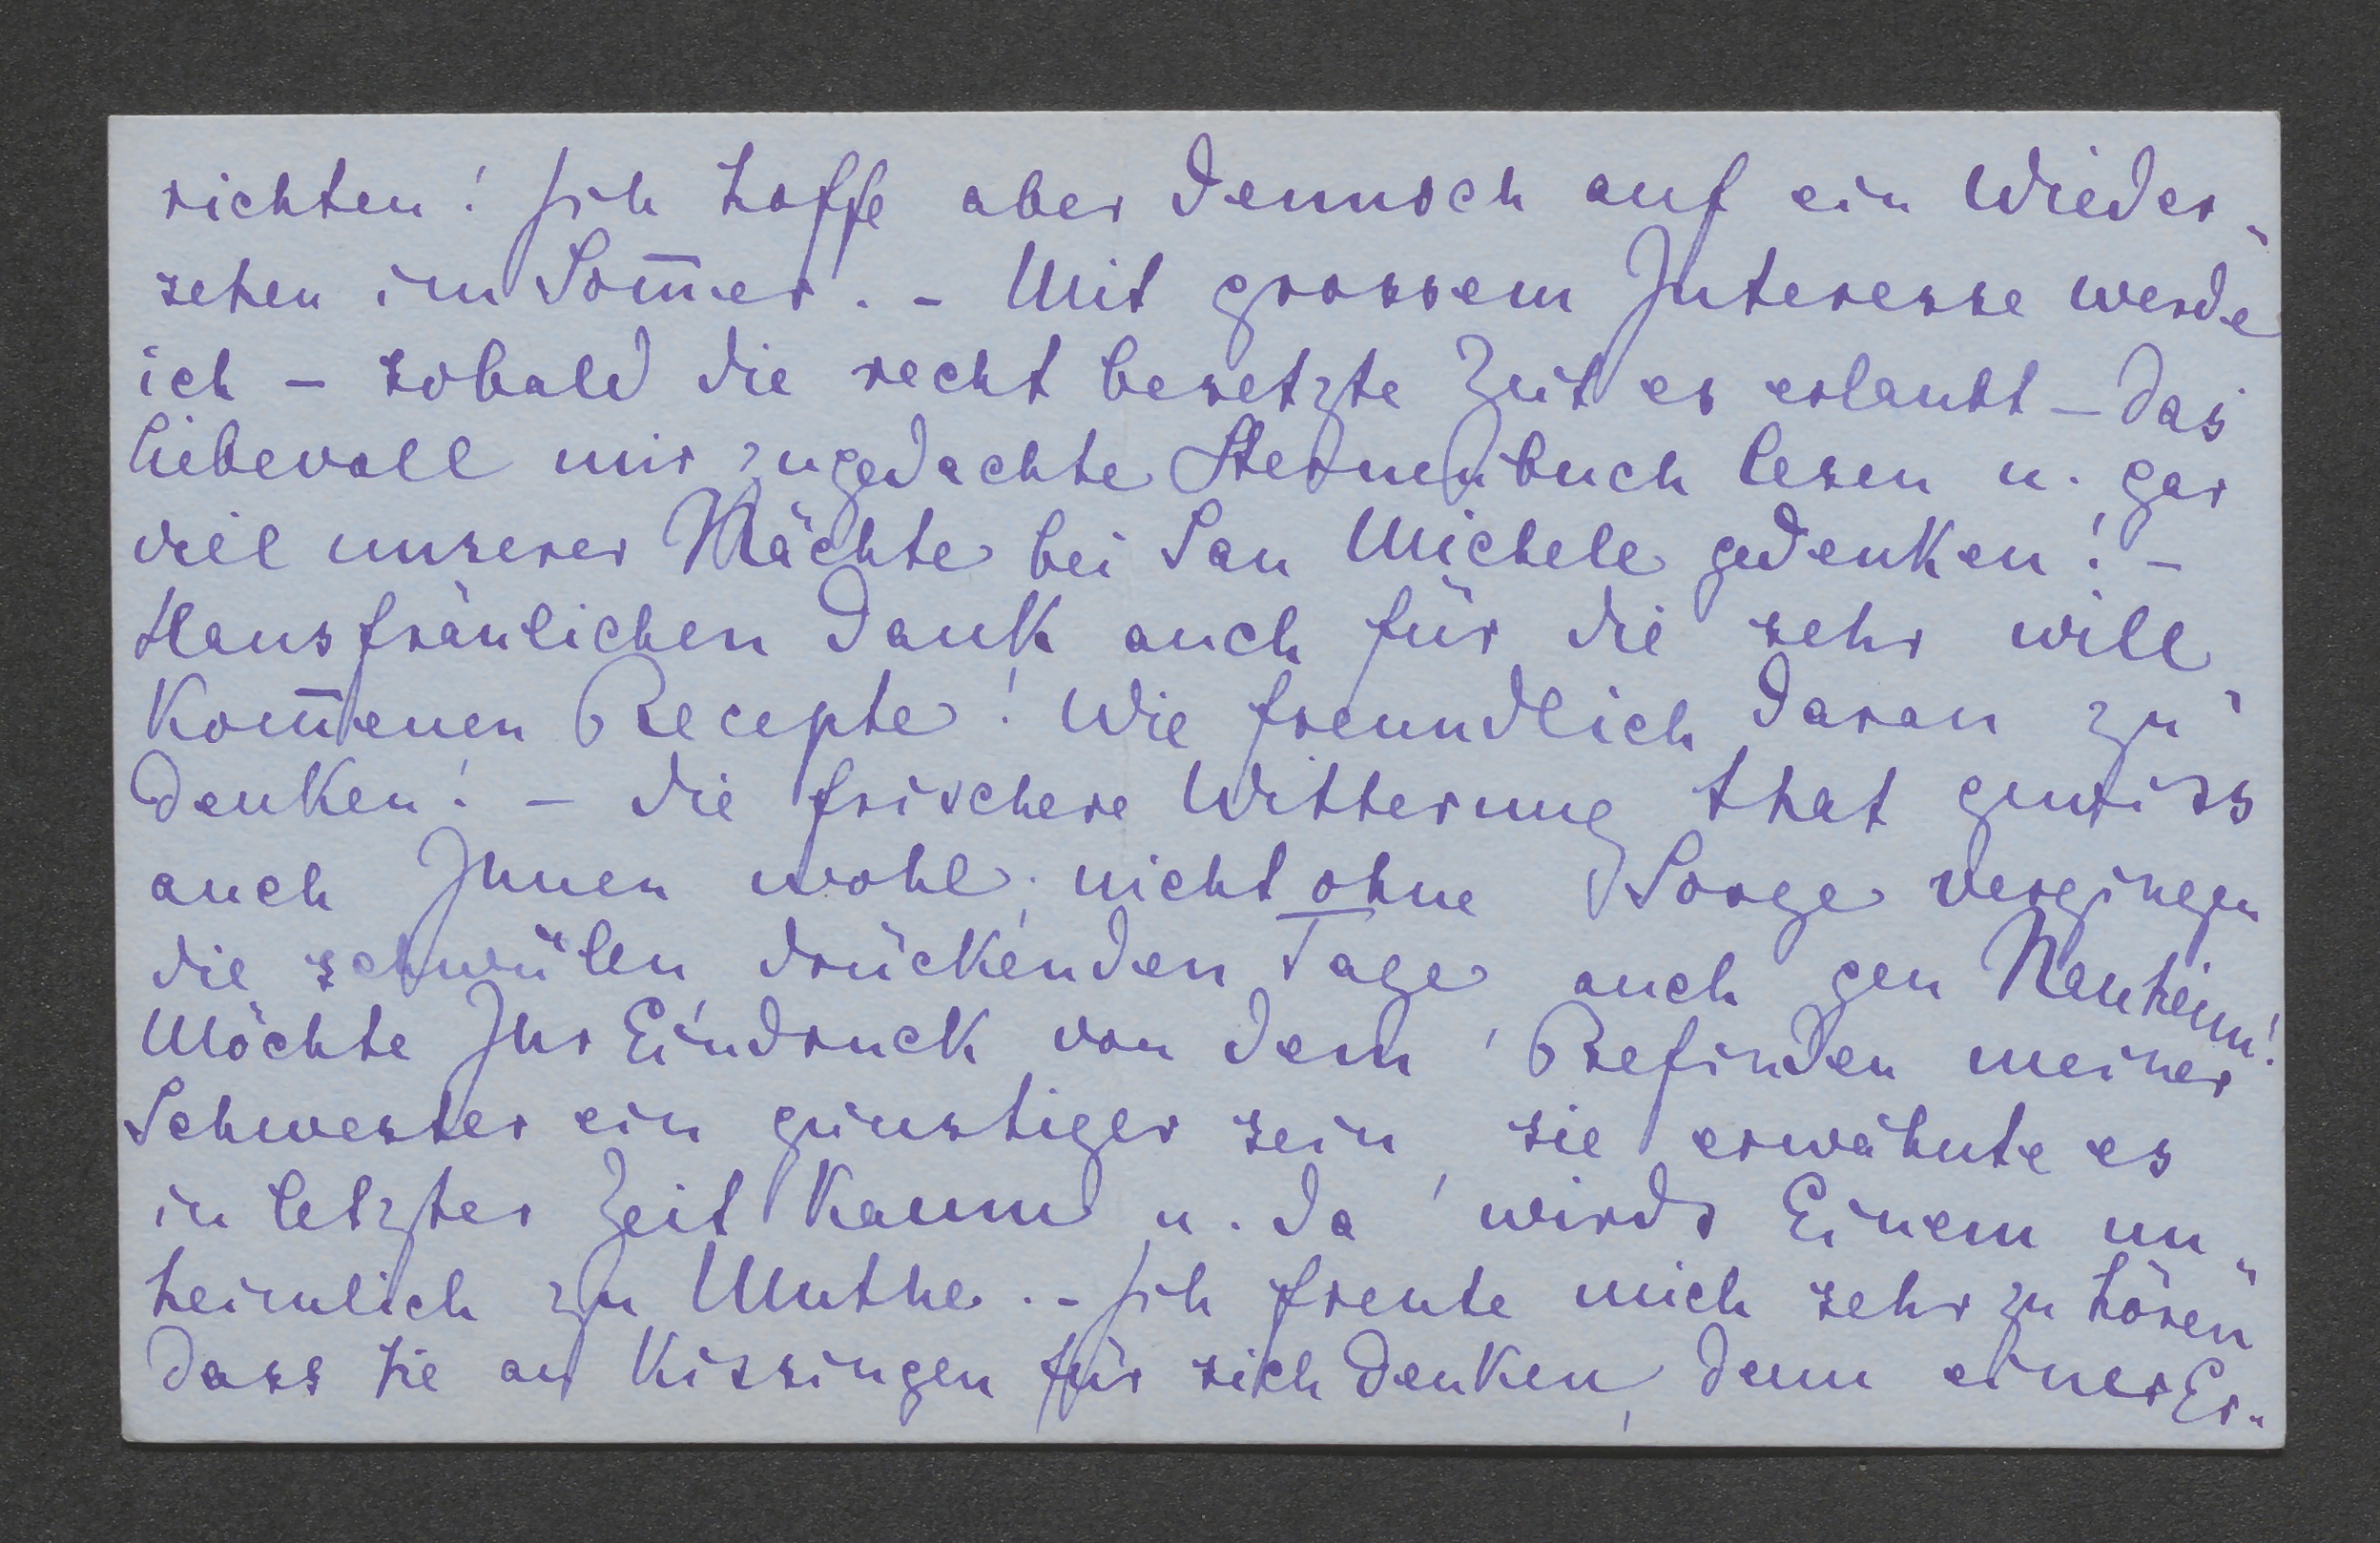 richten! Ich hoffe aber dennoch auf ein Wieder-
sehen im Som̅er. - Mit grossem Interesse werde
ich - sobald die recht besetzte Zeit es erlaubt - das
liebevoll mir zugedachte Sternenbuch lesen u. gar
viel unserer Nächte bei San Michele gedenken! -
Hausfräulichen Dank auch für die sehr will-
kom̅enen Recepte! Wie freundlich daran zu
denken! - Die frischere Witterung that gewiss
auch Ihnen wohl; nicht ohne Sorge vergingen
die schwülen, drückenden Tage, auch gen Nauheim!
Möchte Ihr Eindruck von dem Befinden meiner
Schwester ein günstiger sein, sie erwähnte es
in letzter Zeit kaum u. da wirds Einem un-
heimlich zu Muthe. - Ich freute mich sehr zu hören
dass Sie an Kissingen für sich denken, denn einer Er-